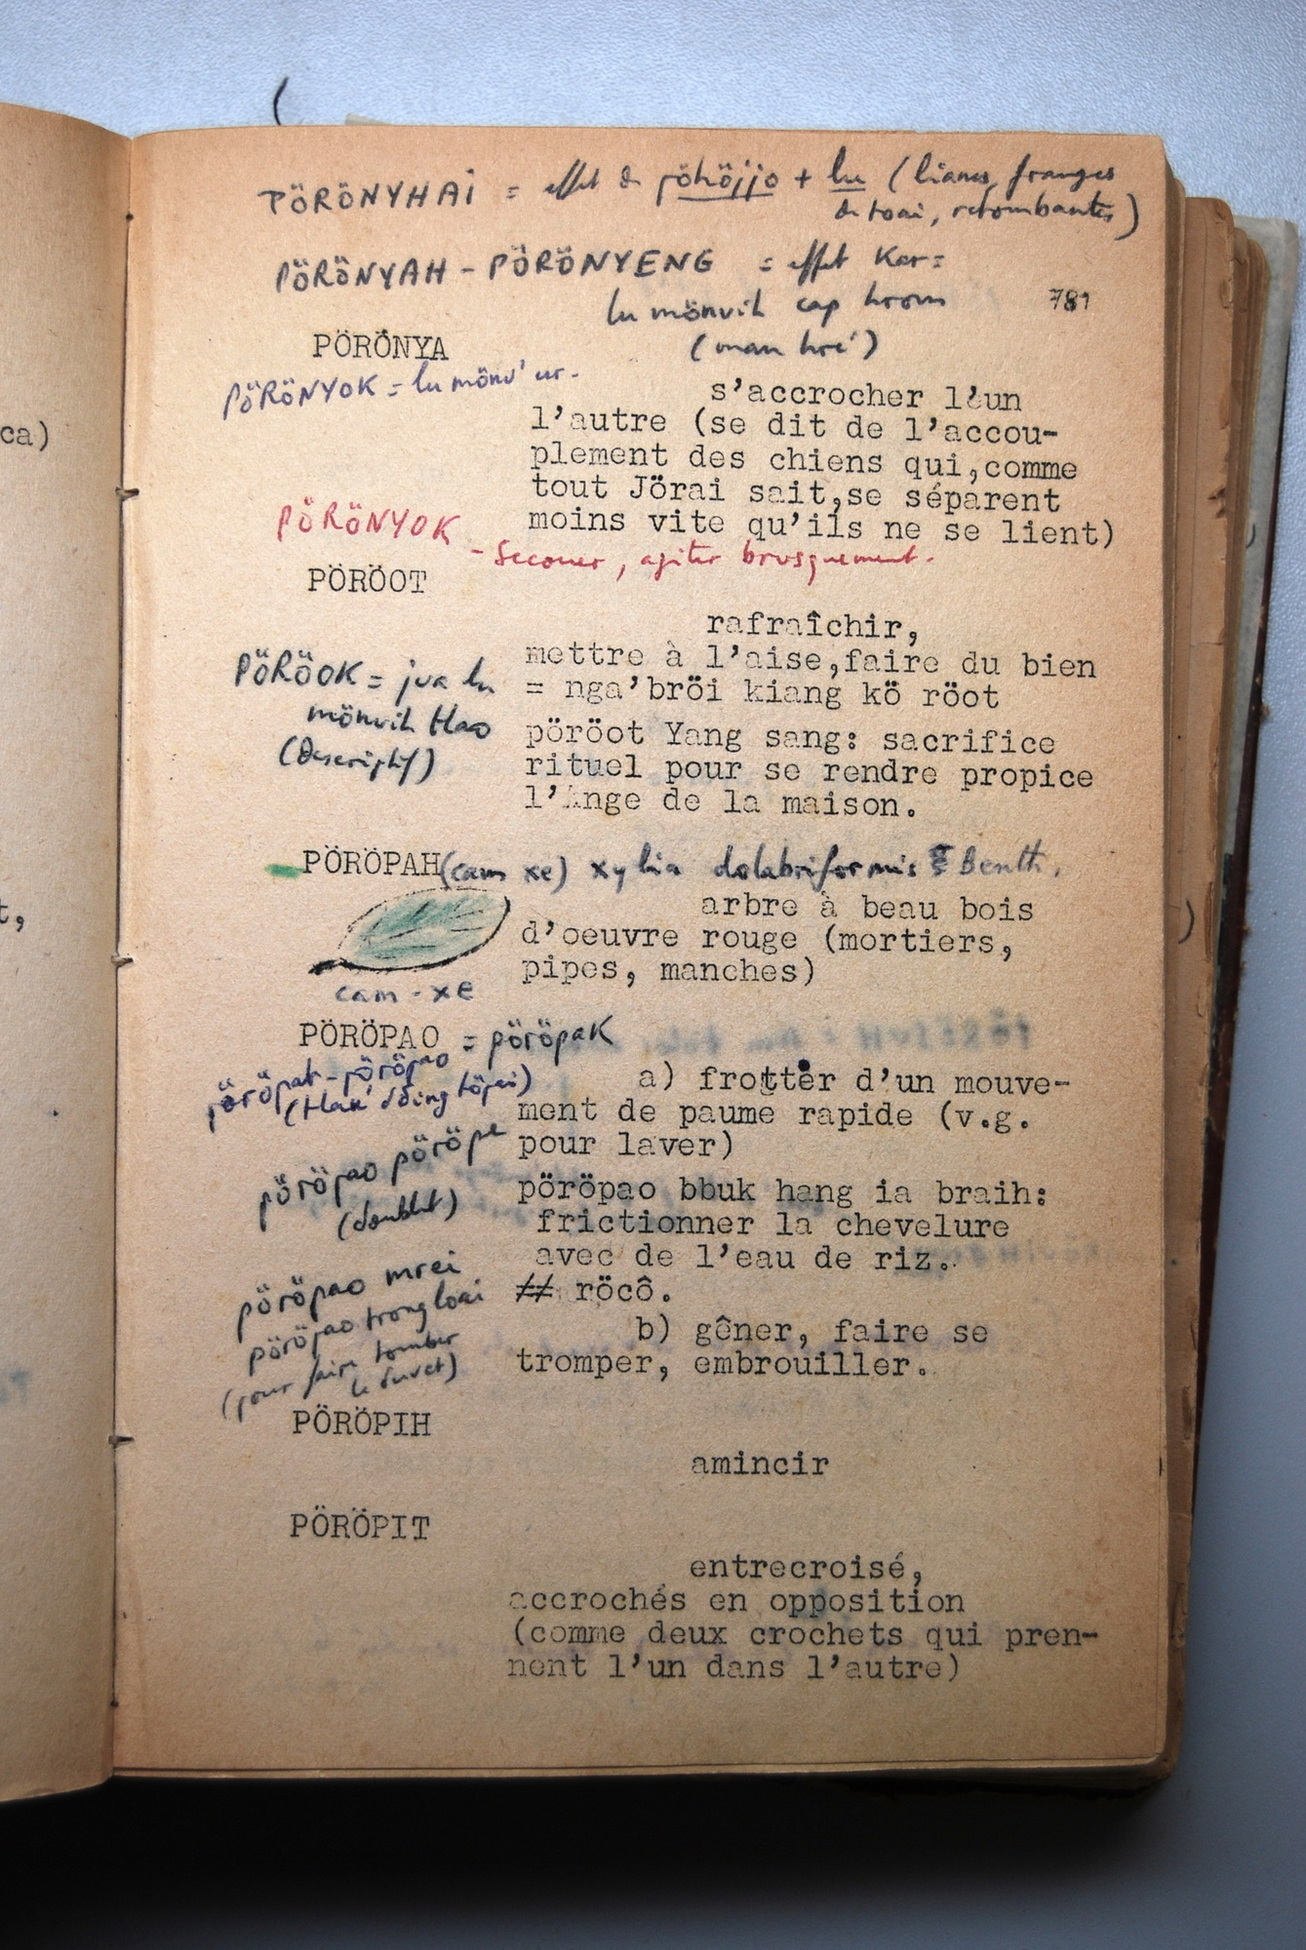 PÖRÖNYHAI = effet de pöhöjjo + lu (lianes, franges
de toai, retombantes)
PÖRÖNYAH - PÖRÖNYENG = effet Kar=
lu mönvih cap hrom
(man hré)
781
PÖRÖNYA
PÖRÖNYOK = lu mönv' ur.
s'accrocher l'un
l'autre (se dit de l'accou-
plement des chiens qui,comme
tout Jörai sait,se séparent
moins vite qu'ils ne se lient)
PÖRÖNYOK
- Secouer, agiter brusquement.
PÖRÖOT
rafraîchir,
mettre à l'aise,faire du bien
= nga'bröi kiang kö röot
PÖRÖOK = jua lu
mönvih tlao
(descriptif)
pöröot Yang sang: sacrifice
rituel pour se rendre propice
l'Ange de la maison.
PÖRÖPAH (cam xe) xylia dolabriformis Benth.
arbre à beau bois
d'oeuvre rouge (mortiers,
pipes, manches)
cam-xe
PÖRÖPAO = pöröpaK
pöröpah-pöröpao
a) frotter d'un mouve-
ment de paume rapide (v.g.
pour laver)
pöröpao pöröpe
(doublet)
pöröpao bbuk hang ia braih:
frictionner la chevelure
avec de l'eau de riz.
pöröpao mrei
pöröpao trong loai
(pour faire tomber
le duvet)
# röcô.
b) gêner, faire se
tromper, embrouiller.
PÖRÖPIH
amincir
PÖRÖPIT
entrecroisé,
accrochés en opposition
(comme deux crochets qui pren-
nent l'un dans l'autre)
ca)
t,